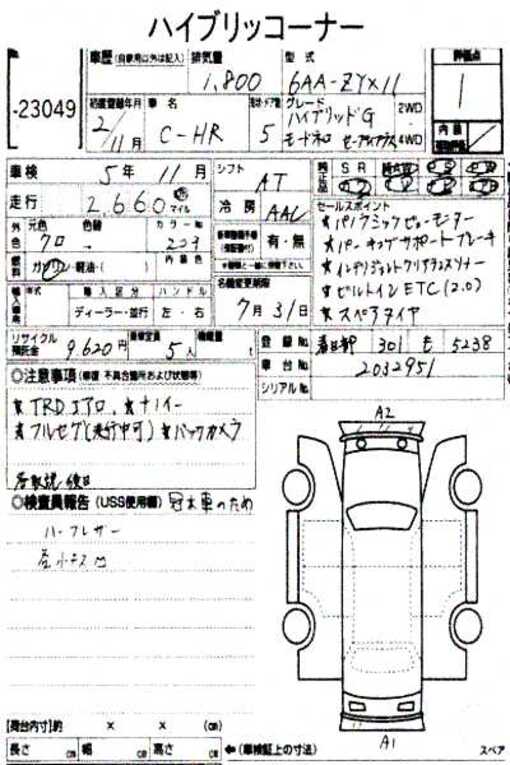 ハイブリッドコーナー
No.
-23049
車歴 (自家用以外は記入)
排気量
1,800
型式
6AA-ZYX11
評価点
1
初度登録年月
2/11月
車名
C-HR
5
グレード
ハイブリッドG
モードネロ セーフティプラス
2WD
4WD
内装
車検 5年 11月
シフト AT
純正品 SR
走行 2,660 マイル
冷房 AAC
セールスポイント
★パノラミックビューモニター
★パーキングサポートブレーキ
★インテリジェントクリアランスソナー
★ビルトインETC(2.0)
★スペアタイヤ
外色 元色 クロ 色替 カラーNo.
内装色
燃料 ガソリン・軽油・( )
有・無
名義変更期限
7月31日
輸入車 年式 輸入区分 ハンドル
ディーラー・並行 左・右
リサイクル預託金 9,620円
乗車定員 5人
積載量 t
登録No. 春日部 301 も 5238
車台No. 2032951
シリアルNo.
○注意事項 (修復・不具合箇所および状態等)
★TRDエアロ、★ナノイー
★フルセグ(走行中可) ★バックカメラ
各取説後日
○検査員報告 (USS使用欄) 冠水車のため
ハーフレザー
A2
A1
[荷台内寸]約 × × (cm)
長さ cm 幅 cm 高さ cm
←(車検証上の寸法)
スペア